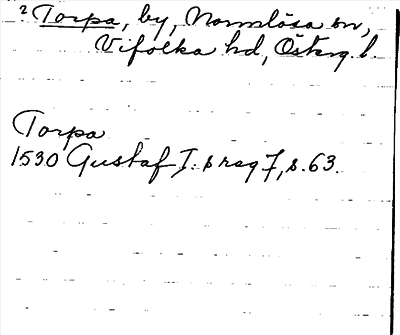 2 Torpa, by, Normlösa sn,
Vifolka hd, Österg. l.
Torpa
1530 Gustaf I:s reg 7, s. 63.